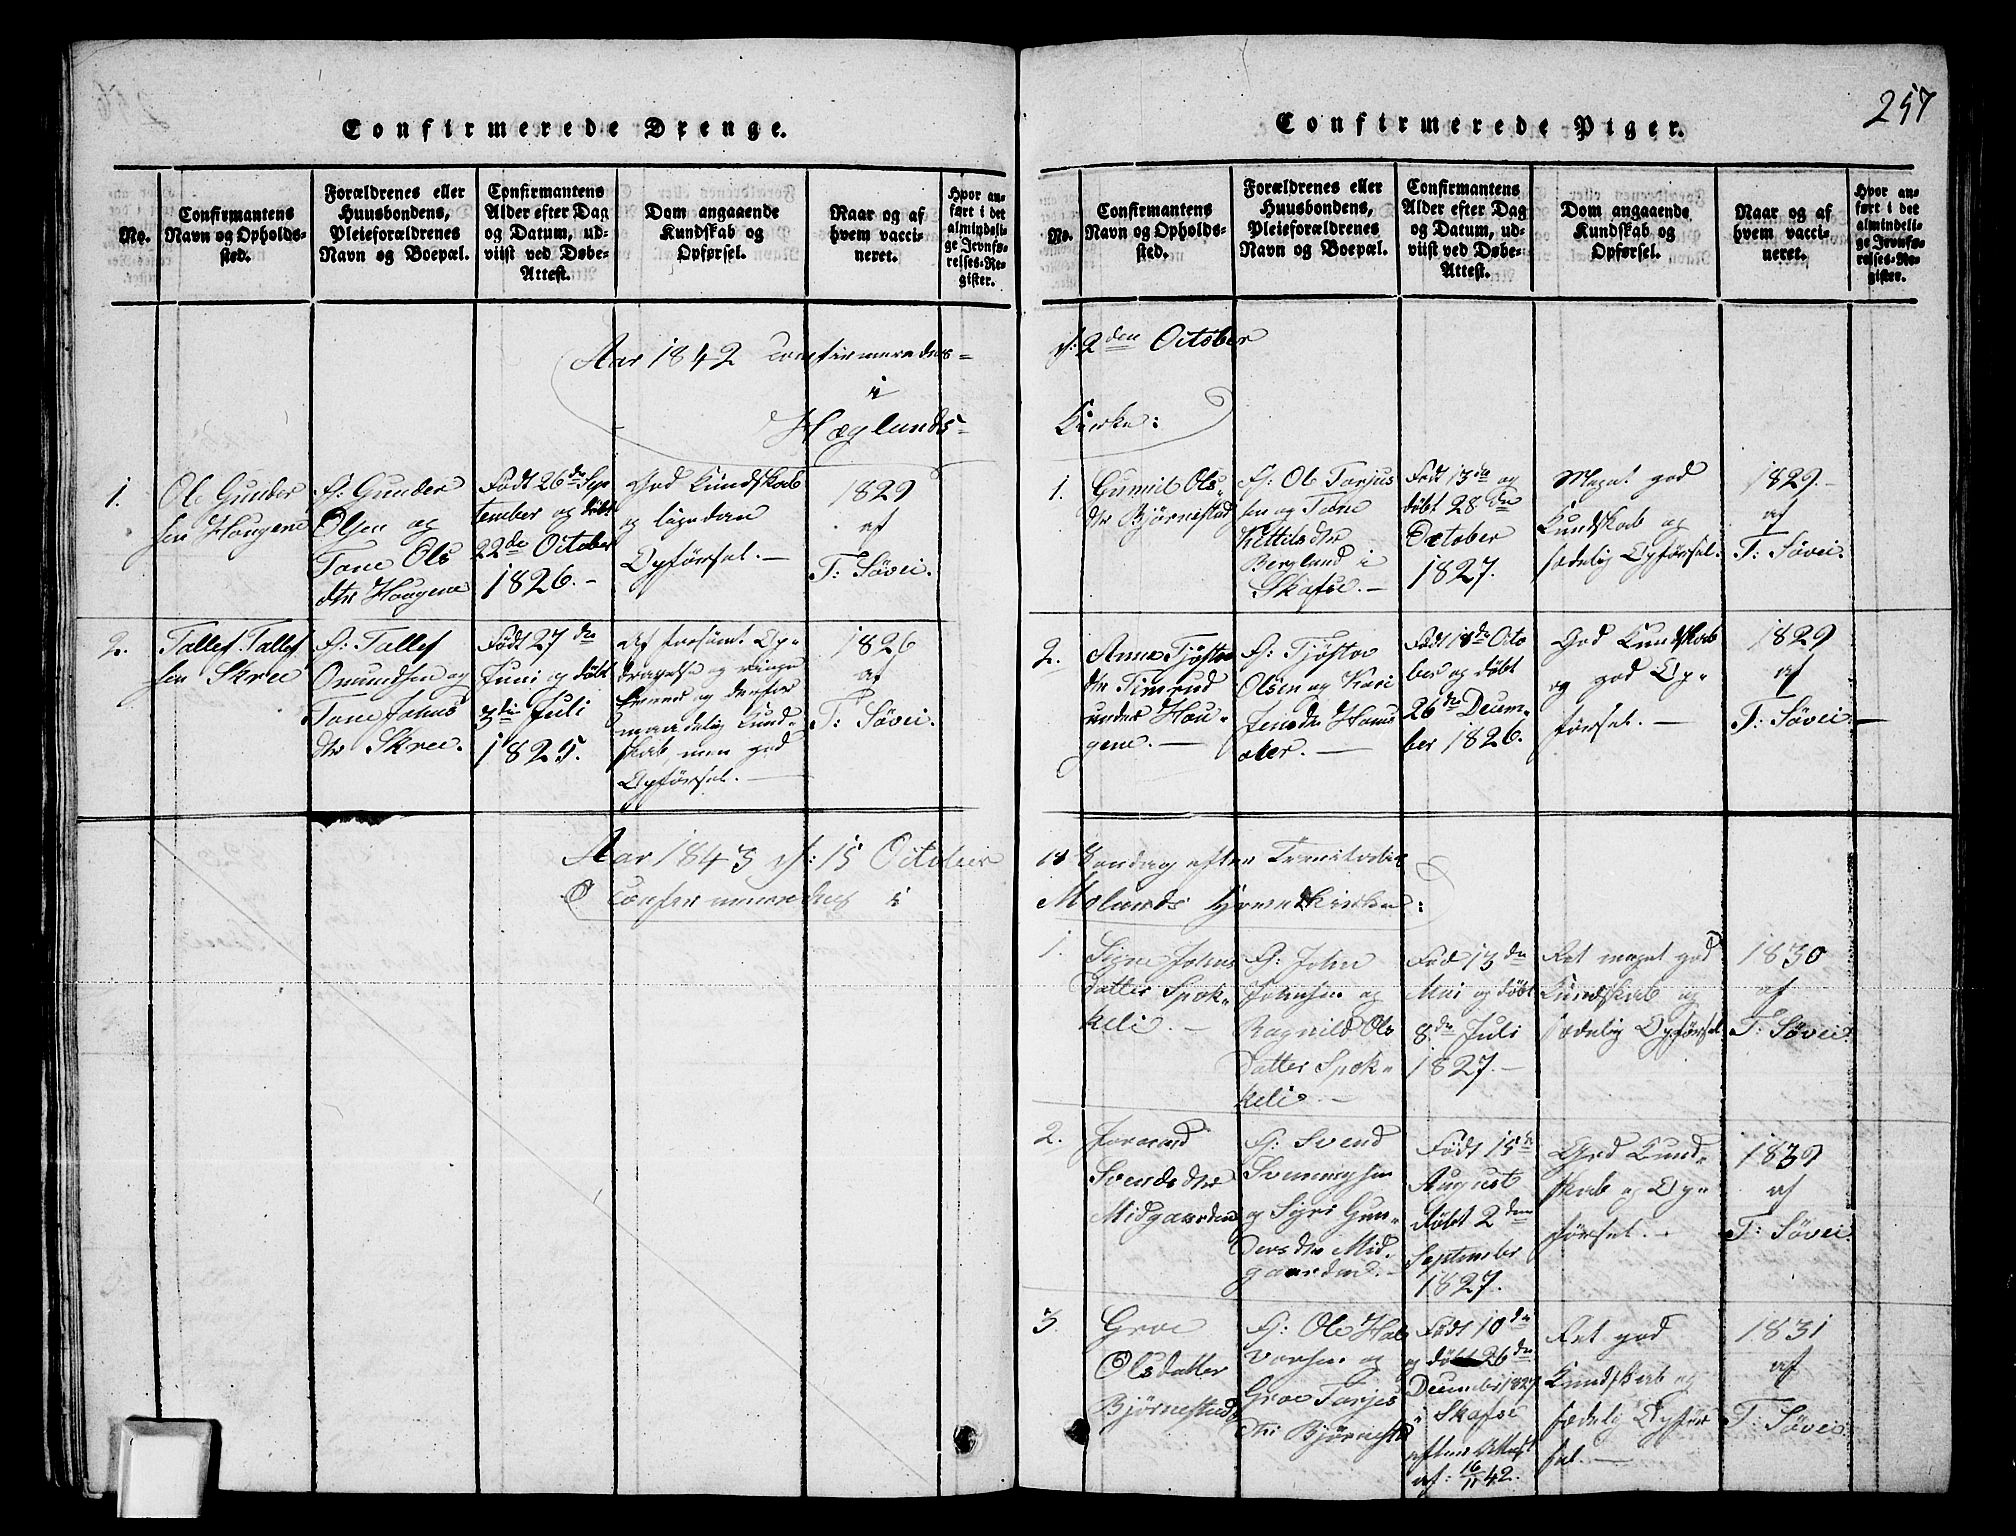 257
Confirmerede Drenge.
No.
Confirmantens
Navn og Opholds-
sted.
Forældrenes eller
Huusbondens,
Pleieforældrenes
Navn og Boepæl.
Confirmantens
Alder efter Dag
og Datum, ud-
viist ved Døbe-
Attest.
Dom angaaende
Kundskab og
Opførsel.
Naar og af
hvem vacci-
neret.
Hvor an-
ført i det
almindeli-
ge Jevnfø-
relses-Re-
gister.
Aar 1842 Confirmeredes
i
Høglunds-
1.
Ole Gunder
sen Haugene
F: Gunder
Olsen og
Tone Ols
dtr Haugene
Født 26de Sep
tember og døbt
22de October
1826.-
God Kundskab
og ligedan
Opførsel.-
1829
af
T: Søvei.
2.
Tallef Tallef
sen Skree
F: Tallef
Omundsen og
Tone Johns
dtr Skree.
Født 27de
Juni og døbt
3die Juli
1825.
Af forsømt Op-
dragelse og ringe
Evner og derfor
maadelig Kund-
skab, men god
Opførsel.-
1826
af
T: Søvei.
Aar 1843 d: 15 October
Confirmeredes i
Confirmerede Piger.
No.
Confirmantens
Navn og Opholds-
sted.
Forældrenes eller
Huusbondens,
Pleieforældrenes
Navn og Boepæl.
Confirmantens
Alder efter Dag
og Datum, ud-
viist ved Døbe-
Attest.
Dom angaaende
Kundskab og
Opførsel.
Naar og af
hvem vacci-
neret.
Hvor an-
ført i det
almindeli-
ge Jevnfø-
relses-Re-
gister.
d: 2den October
Kirke:
1.
Gunnil Ols-
dtr Bjørnestad
F: Ole Tarjus
sen og Tone
Kittilsdtr
Berglund i
Skafse.-
Født 13de og
døbt 28de
October
1827.
Meget god
Kundskab og
sædelig Opførsel.
1829.-
af
T: Søvei.
2.
Anne Tjøstov
dtr Timrud
under Hau-
gene.-
F: Tjøstov
Olsen og Kari
Jensdtr Homs
Født 18de Octo
ber og døbt
26de Decem-
ber 1826.
God Kundskab
og god Op-
førsel.-
1829
af
T: Søvei.-
18 Søndag efter Trinitatis
Molands Hovedkirke:
1.
Signe Johns
datter Spok-
keli.-
F: John
Johnsen og
Ragnild Ols
datter Spok-
keli.-
Fød 13de
Mai og døbt
8de Juli
1827.-
Ret meget god
Kundskab og
sædelig Opførsel
1830
af
T: Søvei.
2.
Joraand
Svendsdtr
Midgaarden
F: Svend
Svenningsen
og Sigri Gun-
dersdtr Mid-
gaarden.-
Født 15de
August
døbt 2den
September
1827.
God Kund-
skab og Op-
førsel.-
1839
af
T: Søvei.
3.
Groe
Olsdatter
Bjørnestad
F: Ole Hal
vorsen og
Groe Tarjes
dtr Bjørnestad
Født 10de
og døbt 26de
December 1827
i Skafse
efter Attest
af: 16/11 42.
Ret god
Kundskab og
sædelig Opfør
sel.-
1831
af
T: Søvei.